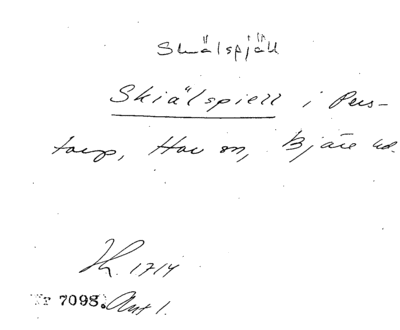 Skälspjäll
Skiälspiell i Pers-
torp, Hov sn, Bjäre hd.
Th. 1714
Nr 7098. Ant 1.